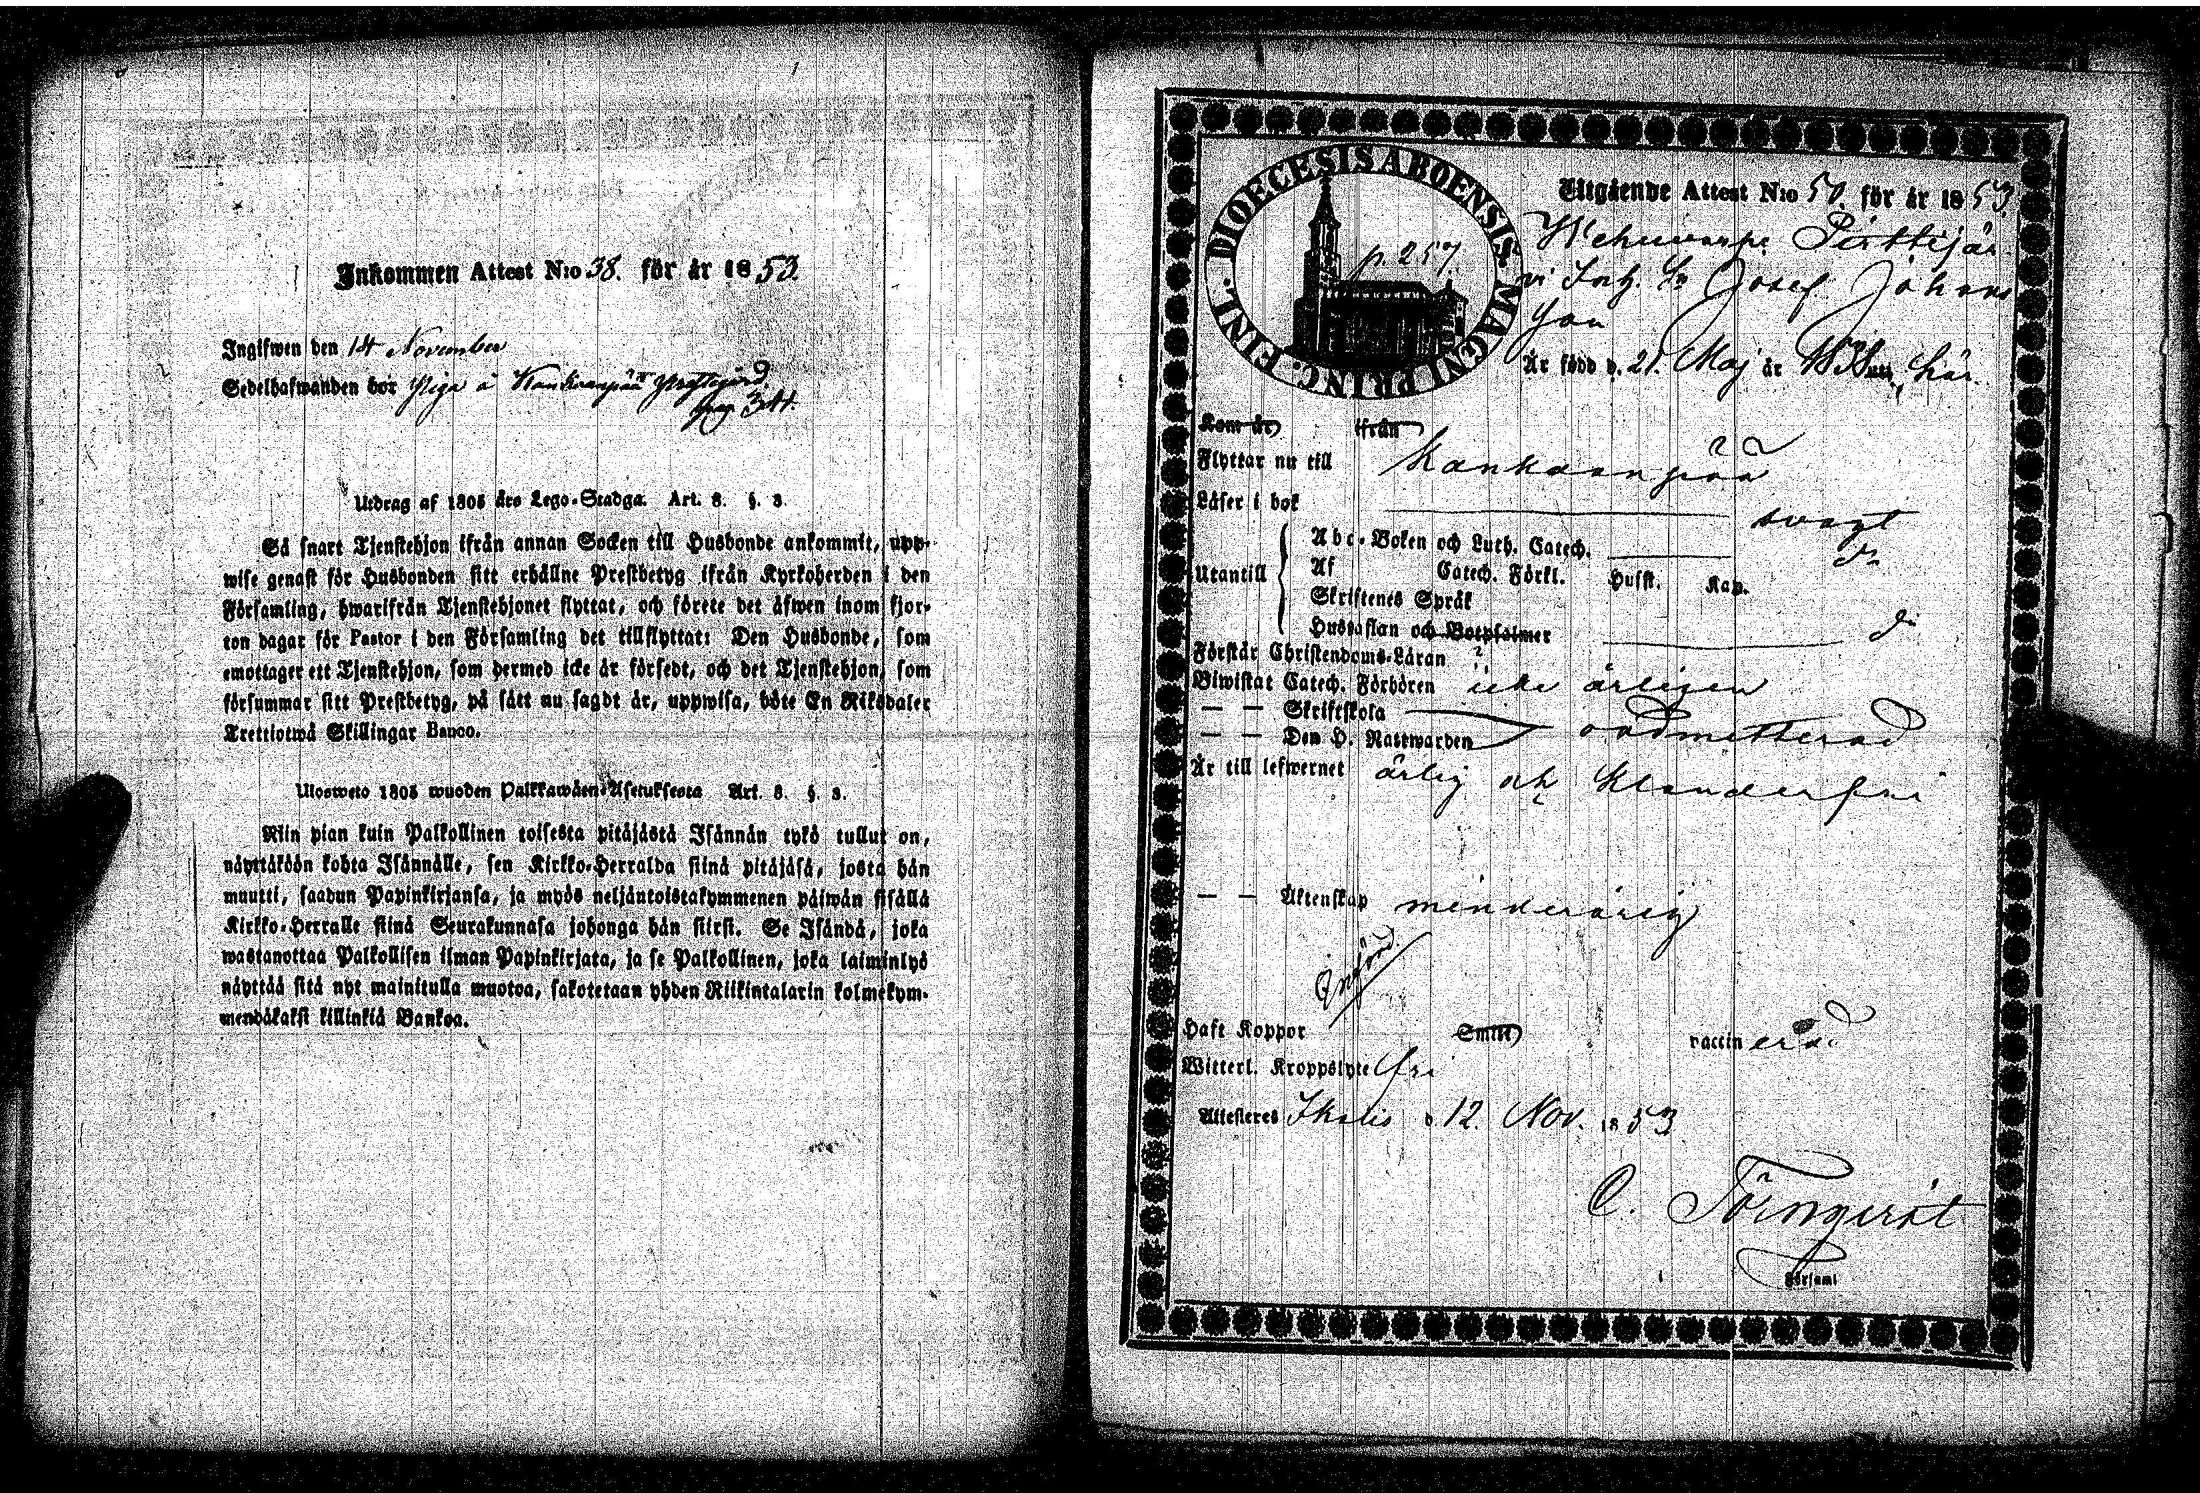 Inkommen Attest N:o 38. för år 1853.
Ingifwen den 14 November
Sedelhafwanden bor Piga å Kankaanpää Prestgård.
pag. 344.
Utdrag af 1805 års Lego-Stadga. Art. 8. §. 3.
Så snart Tjenstehjon ifrån annan Socken till Husbonde ankommit, upp-
wise genast för Husbonden sitt erhållne Prestbetyg ifrån Kyrkoherden i den
Församling, hwarifrån Tjenstehjonet flyttat, och förete det äfwen inom fjor-
ton dagar för Pastor i den Församling det tillflyttat: Den Husbonde, som
emottager ett Tjenstehjon, som dermed icke är försedt, och det Tjenstehjon, som
försummar sitt Prestbetyg, på sätt nu sagdt är, uppwisa, böte En Riksdaler
Trettiotwå Skillingar Banco.
Ulosweto 1805 wuoden Palkkawäen-Asetuksesta Art. 8. §. 3.
Niin pian kuin Palkollinen toisesta pitäjästä Isännän tykö tullut on,
näyttäköön kohta Isännälle, sen Kirkko-Herralda siinä pitäjäsä, josta hän
muutti, saadun Papinkirjansa, ja myös neljäntoistakymmenen päiwän sisällä
Kirkko-Herralle siinä Seurakunnasa johonga hän siirsi. Se Isändä, joka
wastanottaa Palkollisen ilman Papinkirjata, ja se Palkollinen, joka laiminlyö
näyttää sitä nyt mainitulla muotoa, sakotetaan yhden Riikintalarin kolmekym-
mendäkaksi killinkiä Bankoa.
DIOECESIS ABOENSIS. MAGNI PRINC. FINL.
p. 257
Utgående Attest N:o 50. för år 1853.
Pirttijär
vi Inh. Josef Johans
Är född d. 21. Maj år här.
Kom år ifrån
Flyttar nu till Kankaanpää
Läser i bok svagt
Utantill
Abc-Boken och Luth. Catech. do
Af Catech. Förkl. Husst. Kap.
Skriftenes Språk
Hustaflan och Botpsalmer do
Förstår Christendoms-Läran ?
Biwistat Catech. Förhören icke årligen
— — Skriftskola
— — Den H. Nattwarden oadmitterad
Är till lefwernet ärlig och klanderfri
— — Äktenskap minderårig
Införd
Haft Koppor Smitt vaccinerad
Witterl. Kroppslyte fri
Attesteres Ikalis d 12. Nov. 1853
C. Törnqvist
Församl